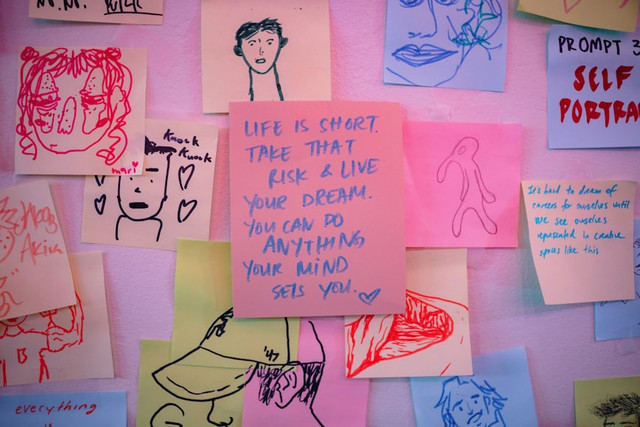 PROMPT 3
SELF
Knock
Knock
mari
LIFE IS SHORT.
TAKE THAT
RISK & LIVE
YOUR DREAM.
YOU CAN DO
ANYTHING
YOUR MIND
SETS YOU.
It's hard to dream of
careers for ourselves until
we see ourselves
represented in creative
spaces like this
Akira
'47
everything